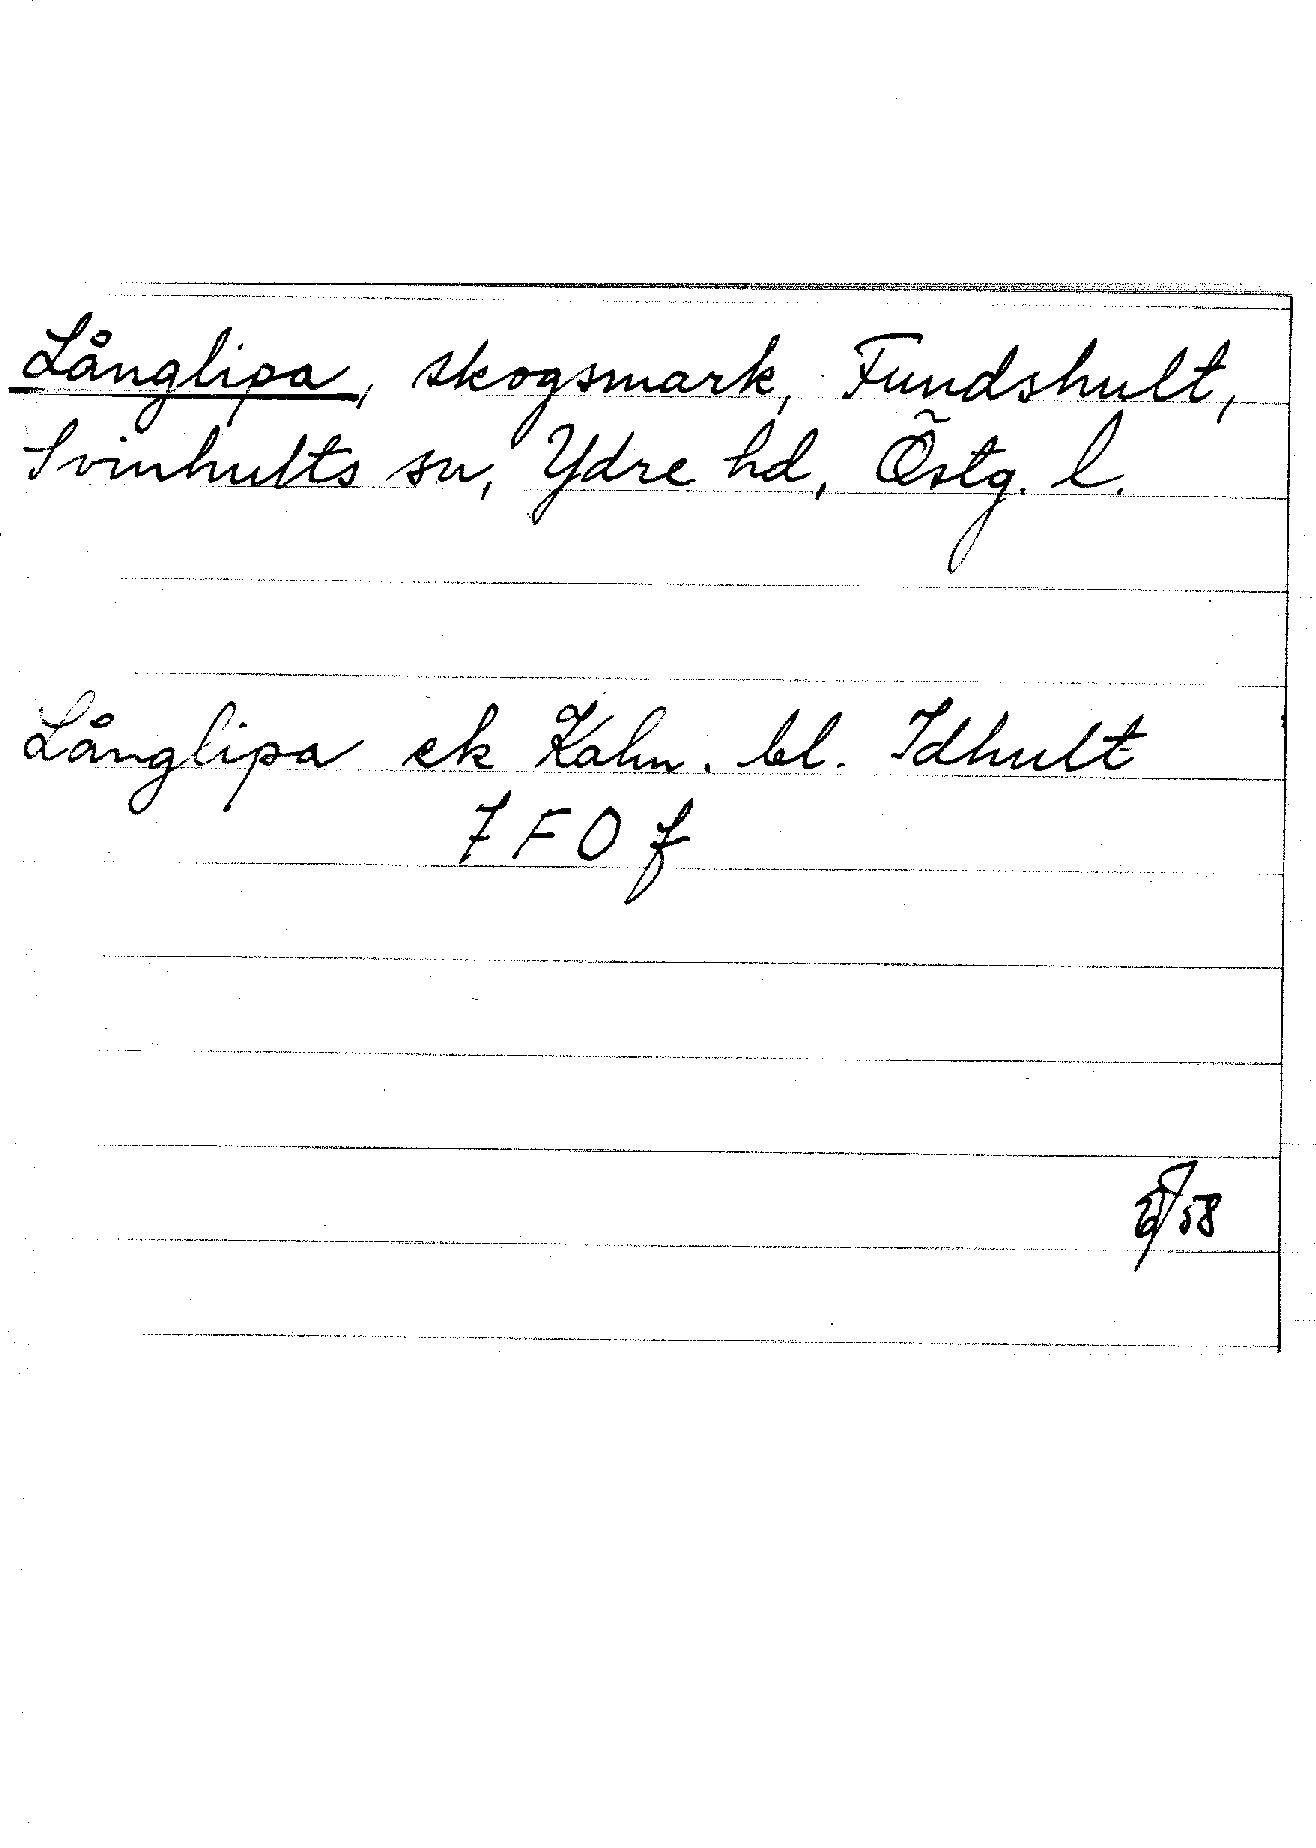 Långlipa, skogsmark, Fundshult,
Svinhults sn, Ydre hd, Östg. l.
Långlipa ek Kahn. bl. Idhult
7 F 0 f
/58